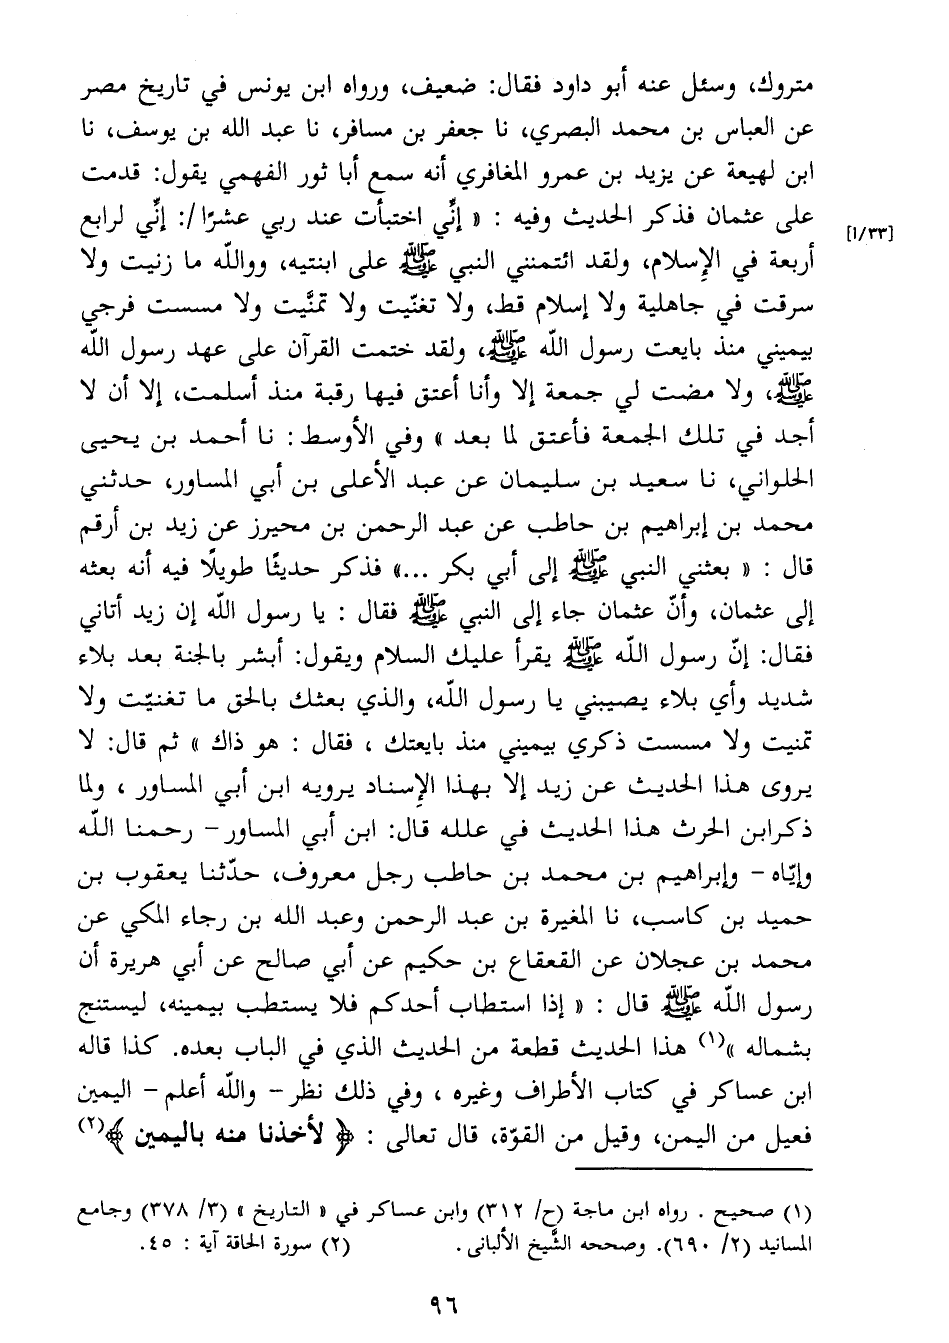 متروك، وسئل عنه أبو داود فقال: ضعيف، ورواه ابن يونس في تاريخ مصر
عن العباس بن محمد البصري، نا جعفر بن مسافر، نا عبد الله بن يوسف، نا
ابن لهيعة عن يزيد بن عمرو المغافري أنه سمع أبا ثور الفهمي يقول: قدمت
على عثمان فذكر الحديث وفيه : « إنِّي اختبأت عند ربي عشرًا /: إنِّي لرابع
[٣٣/ا]
أربعة في الإِسلام، ولقد ائتمنني النبي ﷺ على ابنتيه، ووالله ما زنيت ولا
سرقت في جاهلية ولا إسلام قط، ولا تغنّيت ولا تمنَّيت ولا مسست فرجي
بيميني منذ بايعت رسول الله ﷺ، ولقد ختمت القرآن على عهد رسول الله
ﷺ، ولا مضت لي جمعة إلا وأنا أعتق فيها رقبة منذ أسلمت، إلا أن لا
أجد في تلك الجمعة فأعتق لما بعد » وفي الأوسط: نا أحمد بن يحيى
الحلواني، نا سعيد بن سليمان عن عبد الأعلى بن أبي المساور، حدثني
محمد بن إبراهيم بن حاطب عن عبد الرحمن بن محيرز عن زيد بن أرقم
قال : « بعثني النبي ﷺ إلى أبي بكر ...» فذكر حديثًا طويلًا فيه أنه بعثه
إلى عثمان، وأنّ عثمان جاء إلى النبي ﷺ فقال : يا رسول الله إن زيد أتاني
فقال: إنّ رسول الله ﷺ يقرأ عليك السلام ويقول: أبشر بالجنة بعد بلاء
شديد وأي بلاء يصيبني يا رسول الله، والذي بعثك بالحق ما تغنيّت ولا
تمنيت ولا مسست ذكري بيميني منذ بايعتك ، فقال : هو ذاك » ثم قال: لا
يروى هذا الحديث عن زيد إلا بهذا الإِسناد يرويه ابن أبي المساور ، ولما
ذكرابن الحرث هذا الحديث في علله قال: ابن أبي المساور – رحمنا الله
وإيّاه – وإبراهيم بن محمد بن حاطب رجل معروف، حدّثنا يعقوب بن
حميد بن كاسب، نا المغيرة بن عبد الرحمن وعبد الله بن رجاء المكي عن
محمد بن عجلان عن القعقاع بن حكيم عن أبي صالح عن أبي هريرة أن
رسول الله ﷺ قال : « إذا استطاب أحدكم فلا يستطب بيمينه، ليستنج
بشماله »(١) هذا الحديث قطعة من الحديث الذي في الباب بعده. كذا قاله
ابن عساكر في كتاب الأطراف وغيره ، وفي ذلك نظر – والله أعلم – اليمين
فعيل من اليمن، وقيل من القوّة، قال تعالى : ﴿ لأخذنا منه باليمين ﴾(٢)
(١) صحيح . رواه ابن ماجة (ح/ ٣١٢) وابن عساكر في « التاريخ » (٣/ ٣٧٨) وجامع
المسانيد (٢/ ٦٩٠). وصححه الشَّيخ الألبانى . (٢) سورة الحاقة آية : ٤٥.
٩٦